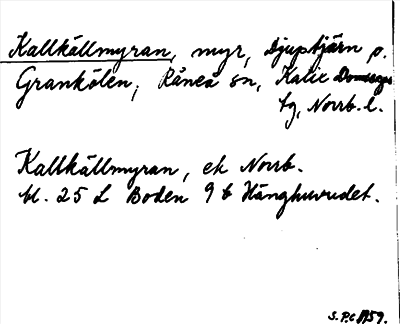 Kallkällmyran, myr, Djuptjärn o.
Grankölen, Råneå sn, Kalix
tg, Norrb. l.
Kallkällmyran, ek Norrb.
bl. 25 L Boden 9 b Hänghuvudet.
S.P.C. 1959.